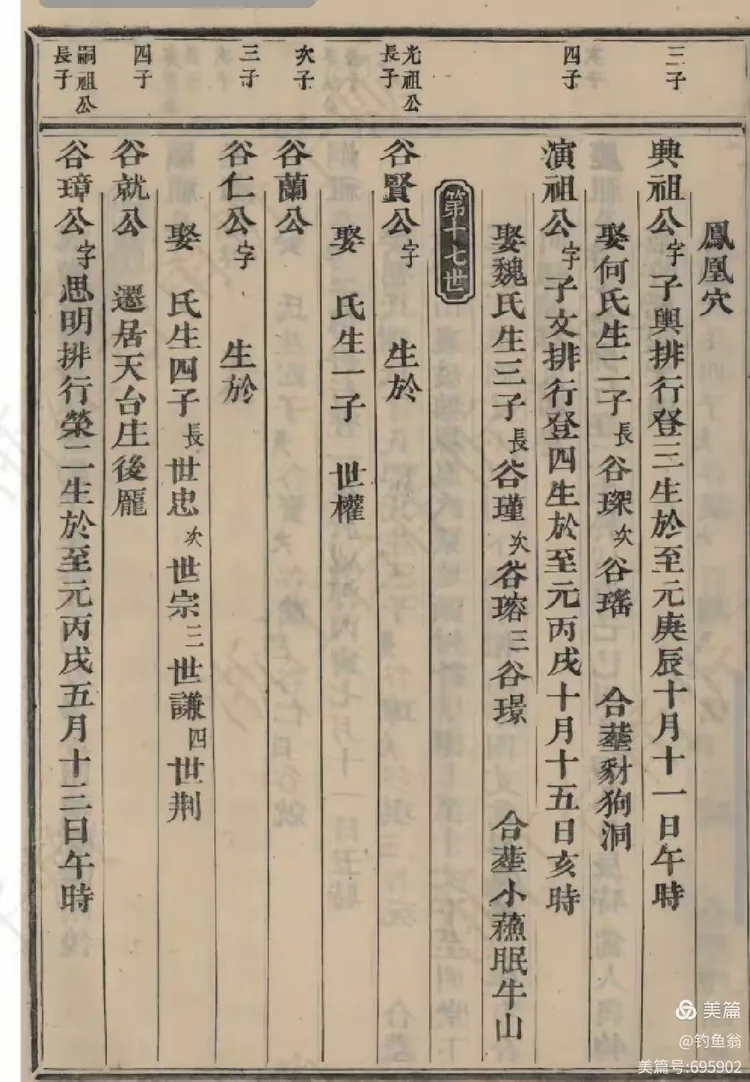 鳳凰穴
三子
興祖公字子輿排行登三生於至元庚辰十月十一日午時
娶何氏生二子長谷琛次谷瑤 合塟豺狗洞
四子
演祖公字子文排行登四生於至元丙戌十月十五日亥時
娶魏氏生三子長谷瑾次谷瑢三谷璟 合塟小蕉眠牛山
第十七世
光祖公長子
谷賢公字 生於
娶 氏生一子 世權
次子
谷蘭公
三子
谷仁公字 生於
娶 氏生四子長世忠次世宗三世謙四世荆
四子
谷就公 遷居天台庄後龐
嗣祖公長子
谷璋公字思明排行榮二生於至元丙戌五月十三日午時
美篇
@钓鱼翁
美篇号:695902